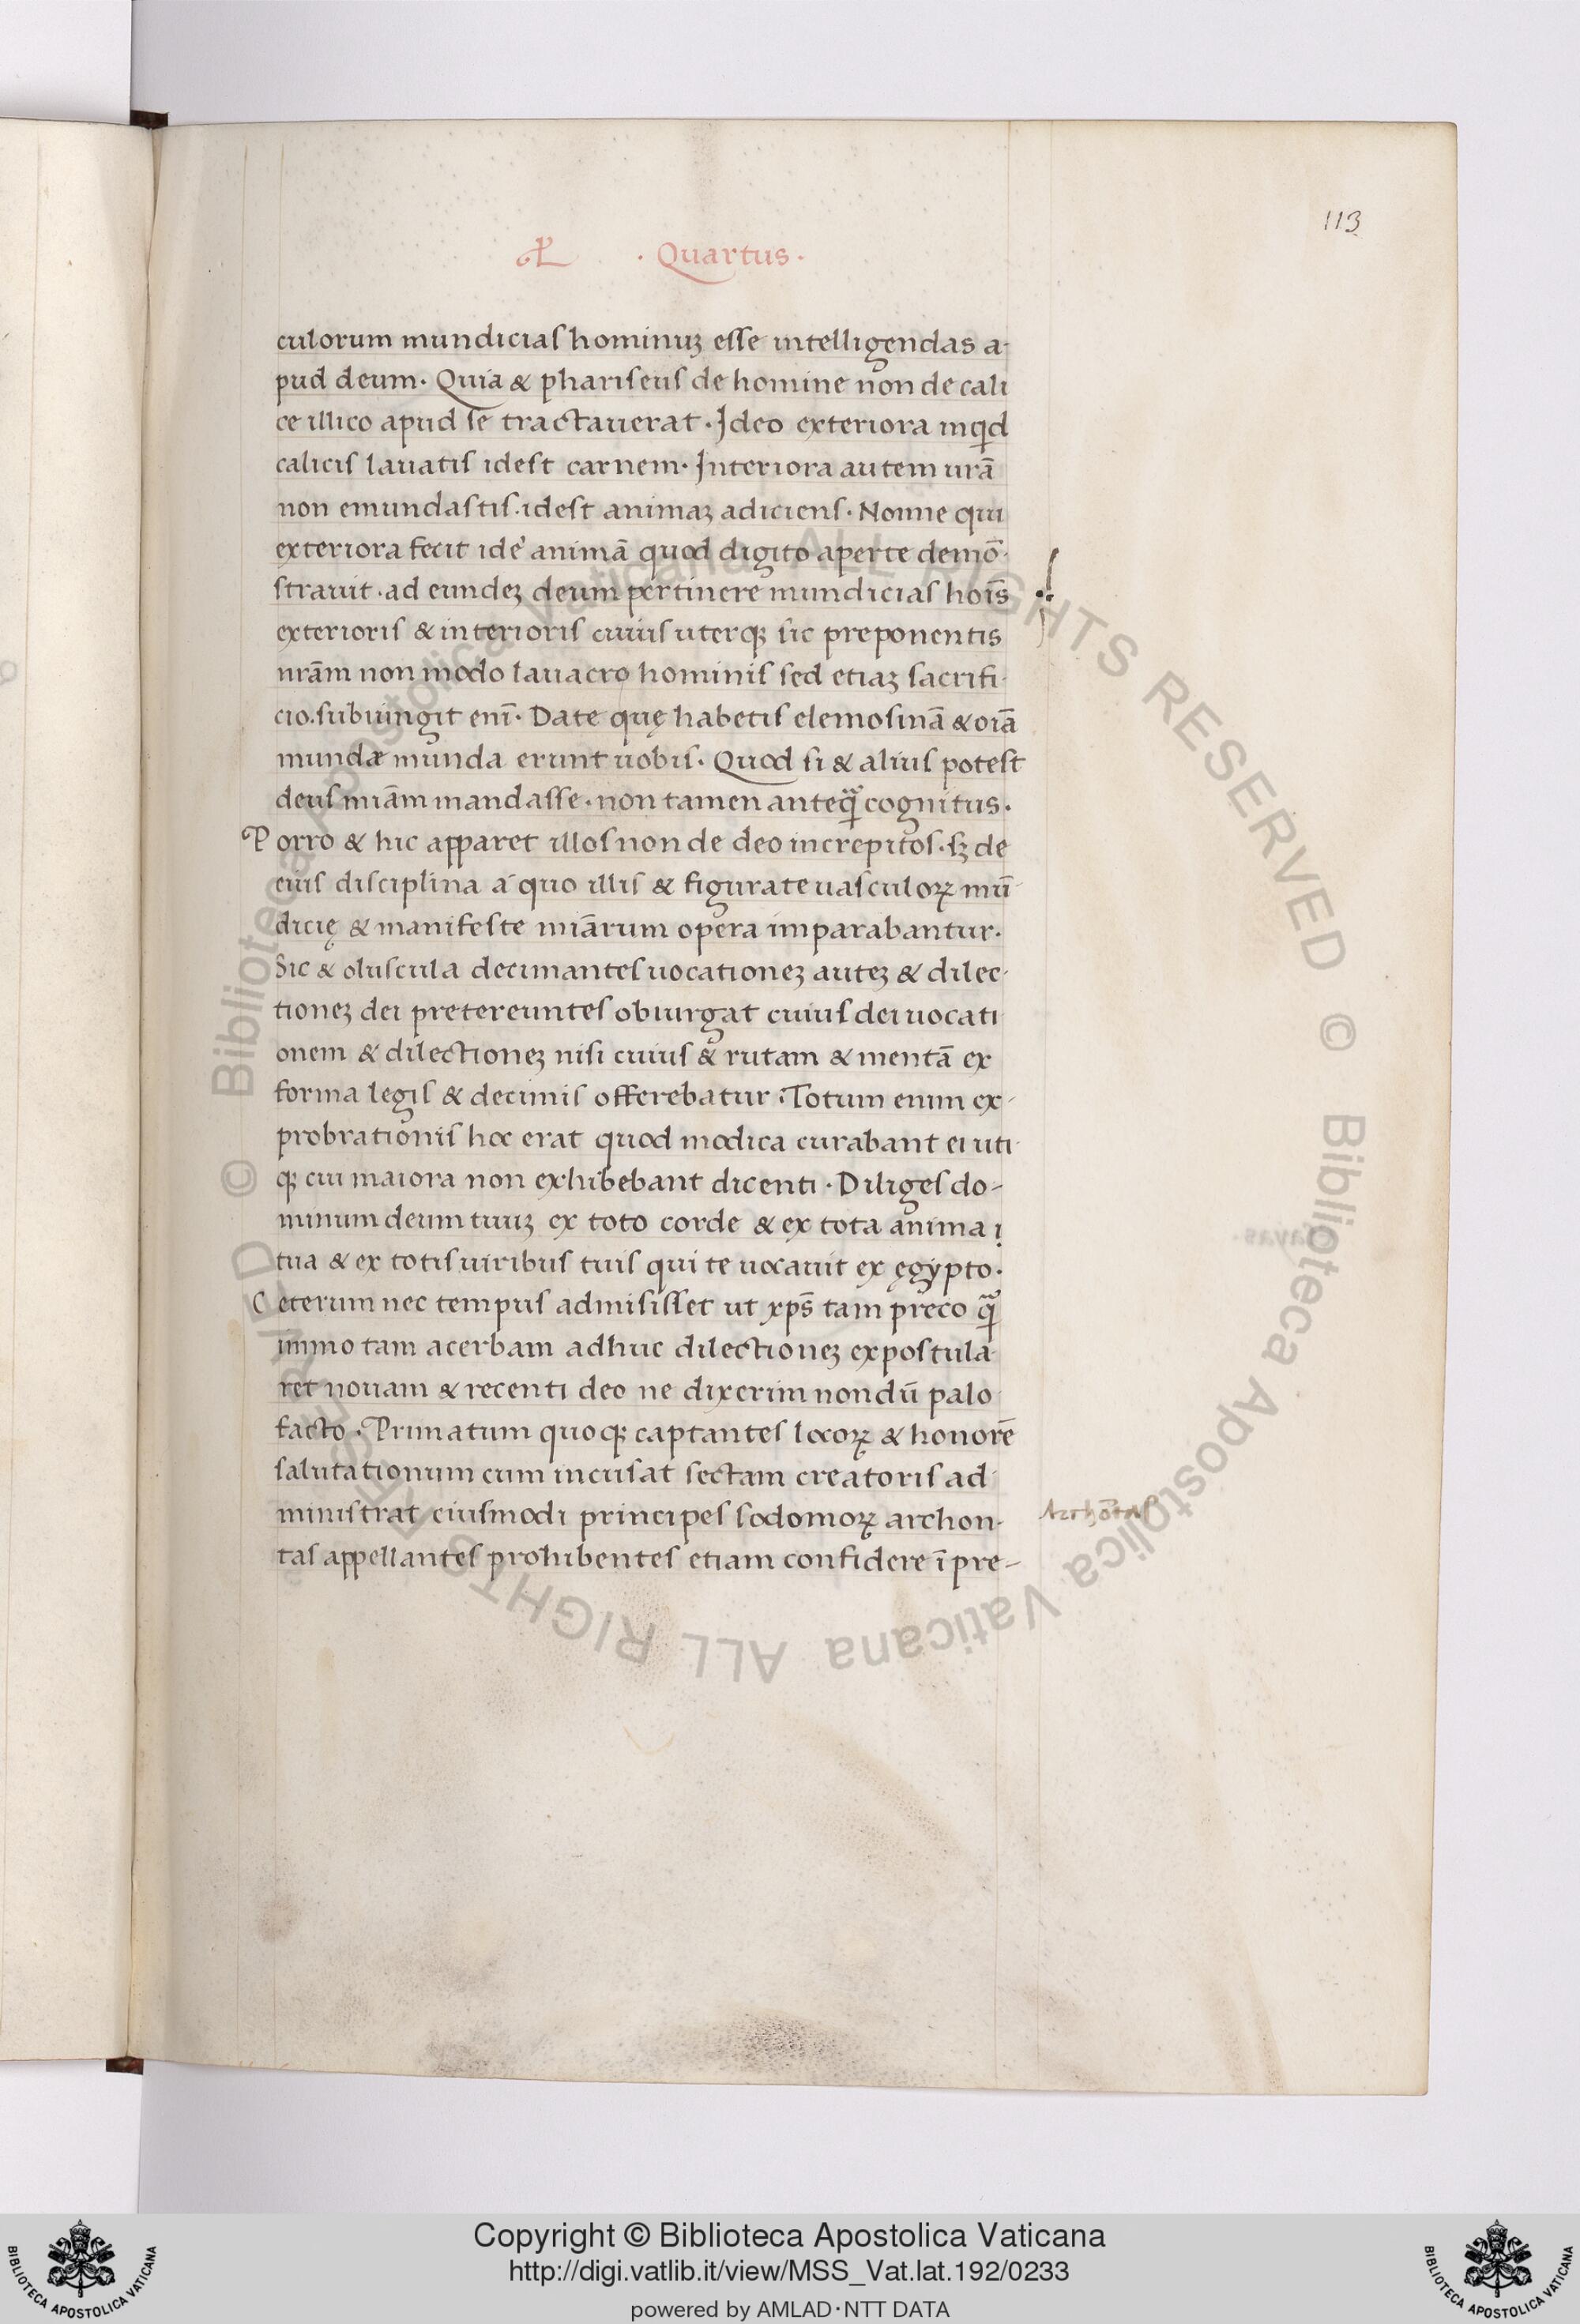 113
· Quartus ·
culorum mundicias hominuꝫ esse intelligendas a-
pud deum. Quia & phariseus de homine non de cali
ce illico apud se tractauerat. Ideo exteriora inqͥd
calicis lauatis idest carnem. Interiora autem urā
non emundastis. idest animaꝫ adiciens. Nonne qui
exteriora fecit idē animā quod digito aperte demō-
strauit. ad eundeꝫ deum pertinere mundicias hoīs
exterioris & interioris cuius uterqꝫ sic preponentis
nrām non modo lauacro hominis sed etiaꝫ sacrifi-
cio. subiungit enī. Date quę habetis elemosinā & oīa
mundæ munda erunt uobis. Quod si & alius potest
deus miām mandasse. non tamen anteqᷓ cognitus.
Porro & hic apparet illos non de deo increpitos. sꝫ de
eius disciplina a quo illis & figurate uasculoꝝ mū-
dicię & manifeste miārum opera imparabantur.
Sic & oluscula decimantes uocationeꝫ auteꝫ & dilec-
tioneꝫ dei pretereuntes obiurgat cuius dei uocati
onem & dilectioneꝫ nisi cuius & rutam & mentā ex
forma legis & decimis offerebatur. Totum enim ex-
probrationis hoc erat quod modica curabant ei uti-
qꝫ cui maiora non exhibebant dicenti. Diliges do-
minum deum tuuꝫ ex toto corde & ex tota anima
tua & ex totis uiribus tuis qui te uocauit ex ęgypto.
Ceterum nec tempus admisisset ut xps̄ tam preco qᷓ
immo tam acerbam adhuc dilectioneꝫ expostula-
ret nouam & recenti deo ne dixerim nondū palo
facto. Primatum quoqꝫ captantes locoꝝ & honorē
salutationum cum incusat sectam creatoris ad-
ministrat eiusmodi principes sodomoꝝ archon-
tas appellantes prohibentes etiam confidere ī pre-
Archōtas
Copyright © Biblioteca Apostolica Vaticana
http://digi.vatlib.it/view/MSS_Vat.lat.192/0233
powered by AMLAD·NTT DATA
BIBLIOTECA APOSTOLICA VATICANA
BIBLIOTECA APOSTOLICA VATICANA
© Biblioteca Apostolica Vaticana ALL RIGHTS RESERVED
© Biblioteca Apostolica Vaticana ALL RIGHTS RESERVED